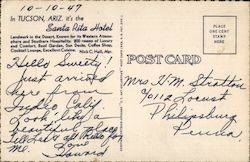 10-10-47
In TUCSON, ARIZ. it's the
Santa Rita Hotel
Landmark in the Desert, Known for its Western Atmosphere
and Southern Hospitality. 200 rooms of Luxury
and Comfort, Roof Garden, Sun Decks, Coffee Shop,
Cocktail Lounge, Excellent Cuisine.
Nick C. Hall, Mgr.
POST CARD
PLACE
ONE CENT
STAMP
HERE
Hello Sweety!
Just arrived
here from
Indio Calif
Looks like a
beautiful place
Hello to all & kiss for
me. Love
Howard
Mrs. H.M. Stratton
c/o 112 Locust
Philipsburg
Penna